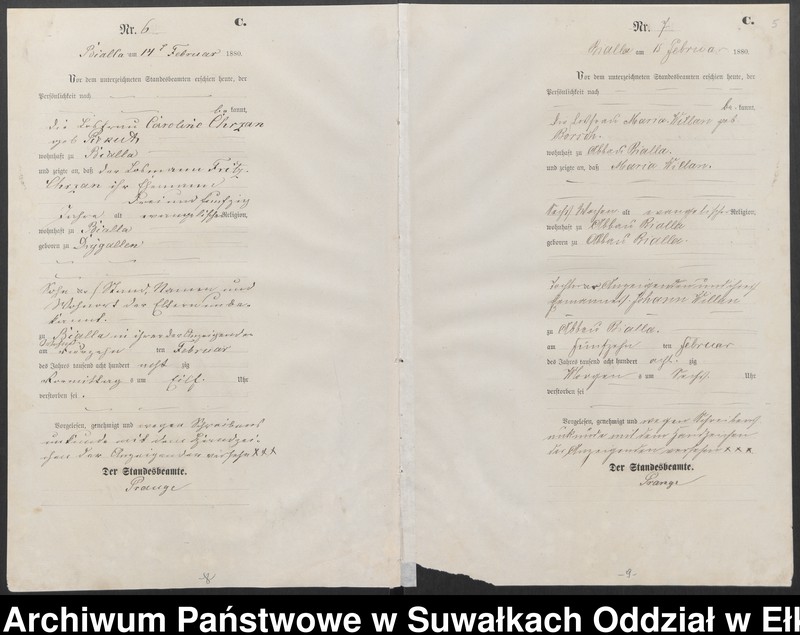 C.
Nr. 6
Bialla am 14 Februar 1880.
Vor dem unterzeichneten Standesbeamten erschien heute, der
Persönlichkeit nach
be kannt,
die Losfrau Caroline Chrzan
geb
wohnhaft zu Bialla
und zeigte an, daß der Losmann Fritz
Chrzan ihr Ehemann
drei und fünfzig
Jahre alt evangelischer Religion,
wohnhaft zu Bialla
geboren zu Drygallen
Sohn der / Stand, Namen und
Wohnort der Eltern unbe-
kannt.
zu Bialla in ihrer der Anzeigenden
am vierzehn ten Februar
des Jahres tausend acht hundert acht zig
Vormittags um Eilf Uhr
verstorben sei.
Vorgelesen, genehmigt und wegen Schreibens
unkunde mit dem Handzei-
chen der Anzeigenden versehn XXX
Der Standesbeamte.
Prange
-8-
C.
5
Nr. 7
Bialla am 15 Februar 1880.
Vor dem unterzeichneten Standesbeamten erschien heute, der
Persönlichkeit nach
be- kannt,
die Losfrau Maria Willan geb
Borsch.
wohnhaft zu Abbau Bialla.
und zeigte an, daß Maria Willan.
Sechs Wochen alt evangelischer Religion,
wohnhaft zu Abbau Bialla
geboren zu Abbau Bialla.
Tochter der Anzeigenden und ihres
Ehemannes Johann Willan
zu Abbau Bialla.
am fünfzehn ten Februar
des Jahres tausend acht hundert acht zig
Morgens um Sechs Uhr
verstorben sei
Vorgelesen, genehmigt und wegen Schreibens
unkunde mit dem Handzeichen
der Anzeigenden versehen xxx
Der Standesbeamte.
Prange
-9-
Archiwum Państwowe w Suwałkach Oddział w Ełk